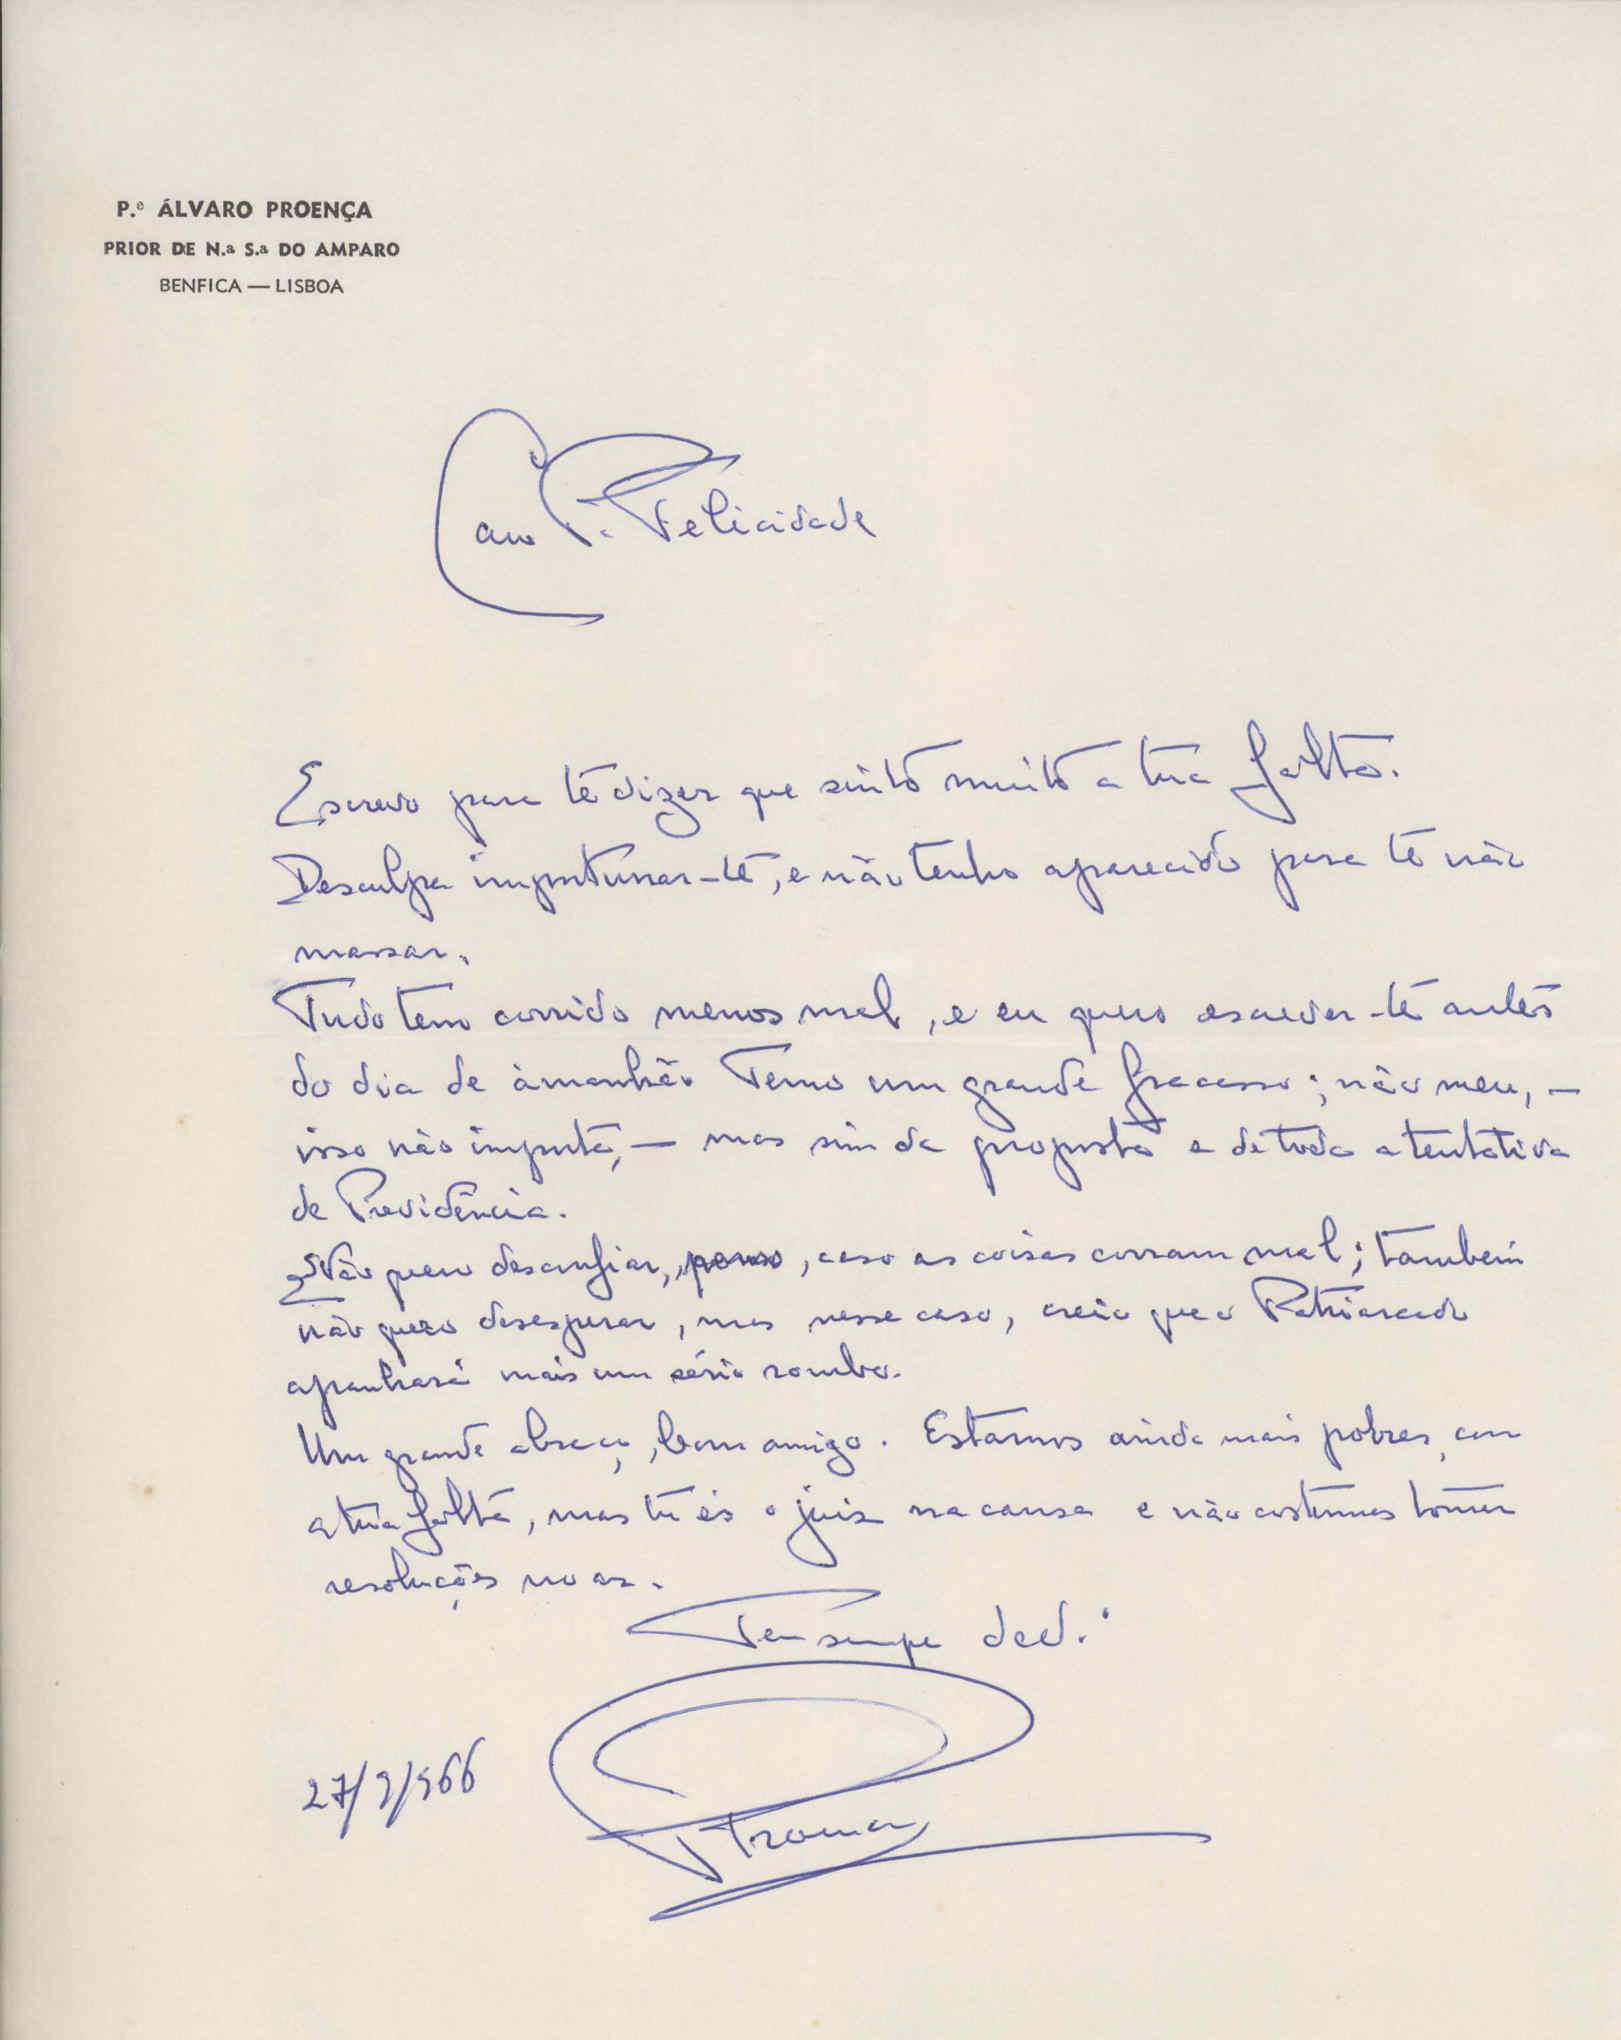 P.e ÁLVARO PROENÇA
PRIOR DE N.a S.a DO AMPARO
BENFICA — LISBOA
Caro P. Felicidade
Escrevo para te dizer que sinto muito a tua falta.
Desculpa importunar-te, e não tenho aparecido para te não
massar.
Tudo tem corrido menos mal, e eu quero escrever-te antes
do dia de àmanhã. Temo um grande fracasso; não meu, —
isso não importa, — mas sim da proposta e de toda a tentativa
de Previdência.
Não quero desconfiar, penso, caso as coisas corram mal; também
não quero desesperar, mas nesse caso, creio que o Patriarcado
apanhará mais um sério rombo.
Um grande abraço, bom amigo. Estamos ainda mais pobres, com
a tua falta, mas tu és o juiz na causa e não costumas tomar
resoluções no ar.
Teu sempre ded.
27/9/966